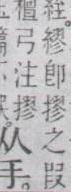 絰。繆卽摎之叚
檀弓注摎
从手。